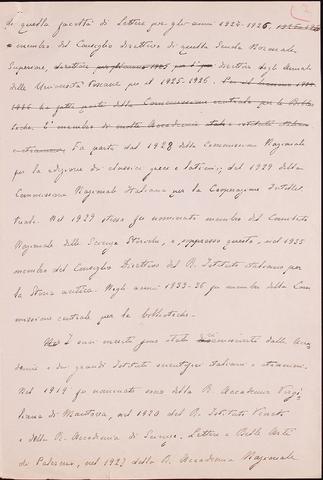 di questa facoltà di Lettere per gli anni 1924-1926,
e membro del Consiglio direttivo di questa Scuola Normale
Superiore, direttore degli Annali
delle Università Toscane per il 1925-1926.
ha fatto parte della Commissione centrale per le Biblio-
teche. È membro di molte Accademie
Fa parte dal 1928 della Commissione Nazionale
per la edizione dei classici greci e latini; dal 1929 della
Commissione Nazionale Italiana per la Cooperazione Intellet-
tuale. Nel 1929 stesso fu nominato membro del Comitato
Nazionale delle Scienze Storiche, e, soppresso questo, nel 1935
membro del Consiglio Direttivo del R. Istituto italiano per
la Storia antica. Negli anni 1933-36 fu membro della Com
missione centrale per le biblioteche.
I suoi meriti sono stati riconosciuti dalle Acca
demie e dai grandi Istituti scientifici italiani e stranieri.
Nel 1919 fu nominato socio della R. Accademia Virgi
liana di Mantova, nel 1920 del R. Istituto Veneto
e della R. Accademia di Scienze, Lettere e Belle Arti
di Palermo, nel 1923 della R. Accademia Nazionale